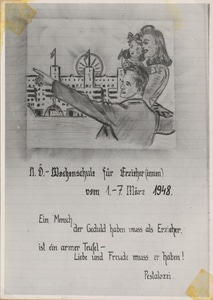 N.Ö.-Wochenschule für Erzieher(innen)
vom 1.-7. März 1948.
Ein Mensch,
der Geduld haben muss als Erzieher,
ist ein armer Teufel –
Liebe und Freude muss er haben!
Pestalozzi.